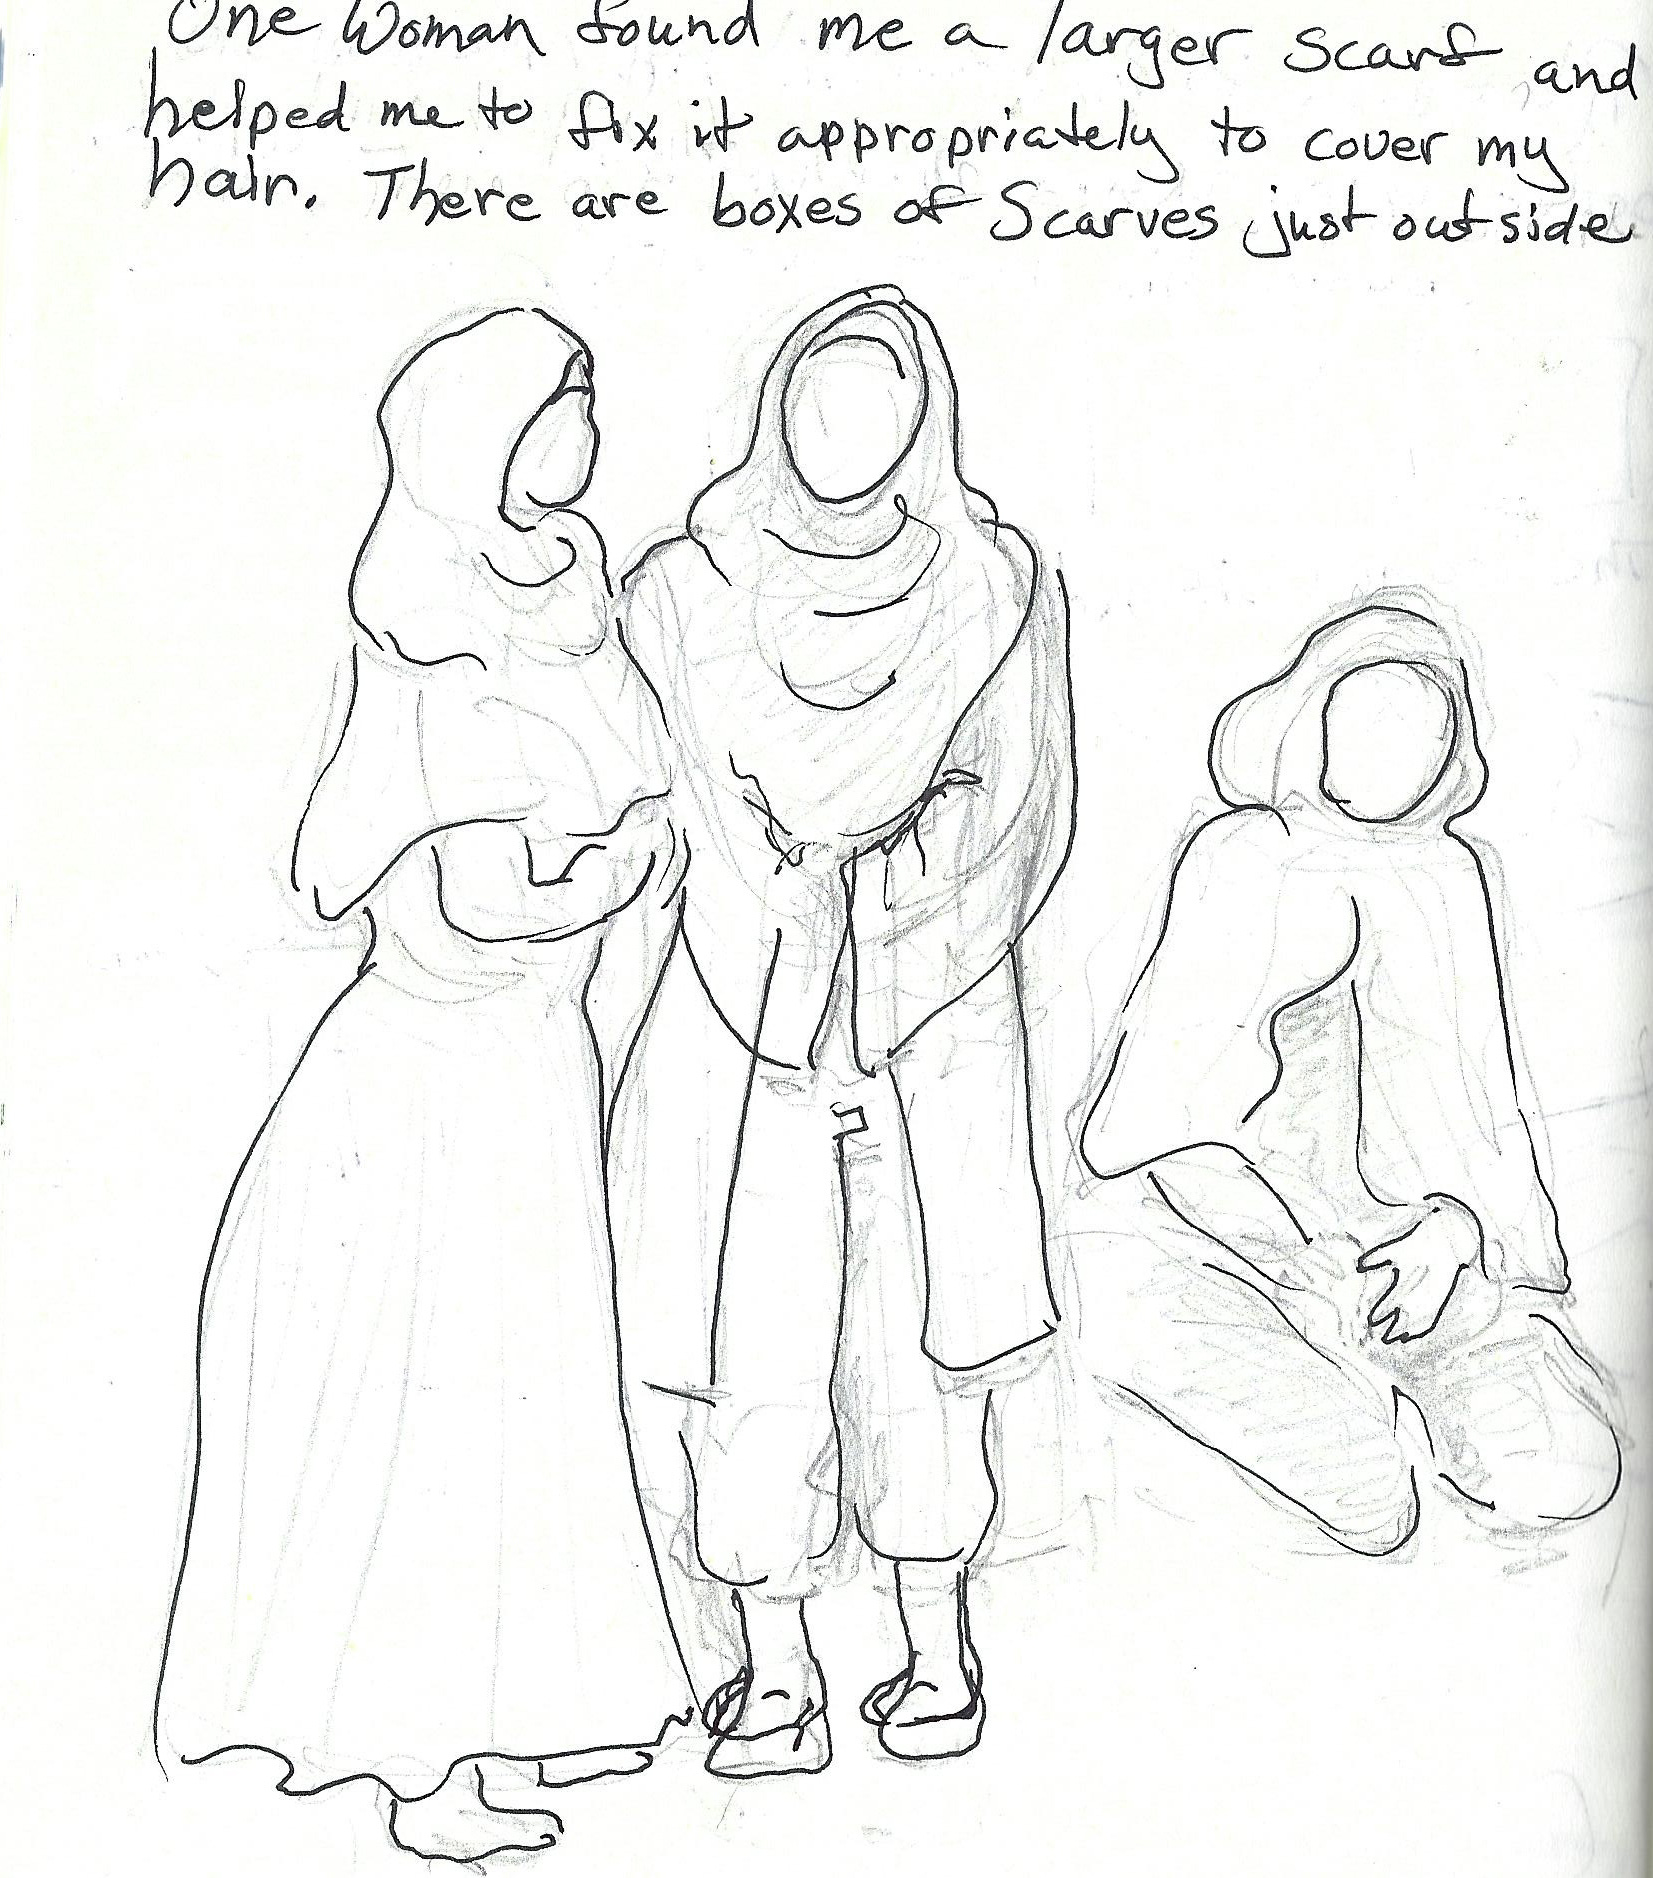 One Woman found me a larger scarf and
helped me to fix it appropriately to cover my
hair. There are boxes of Scarves just outside